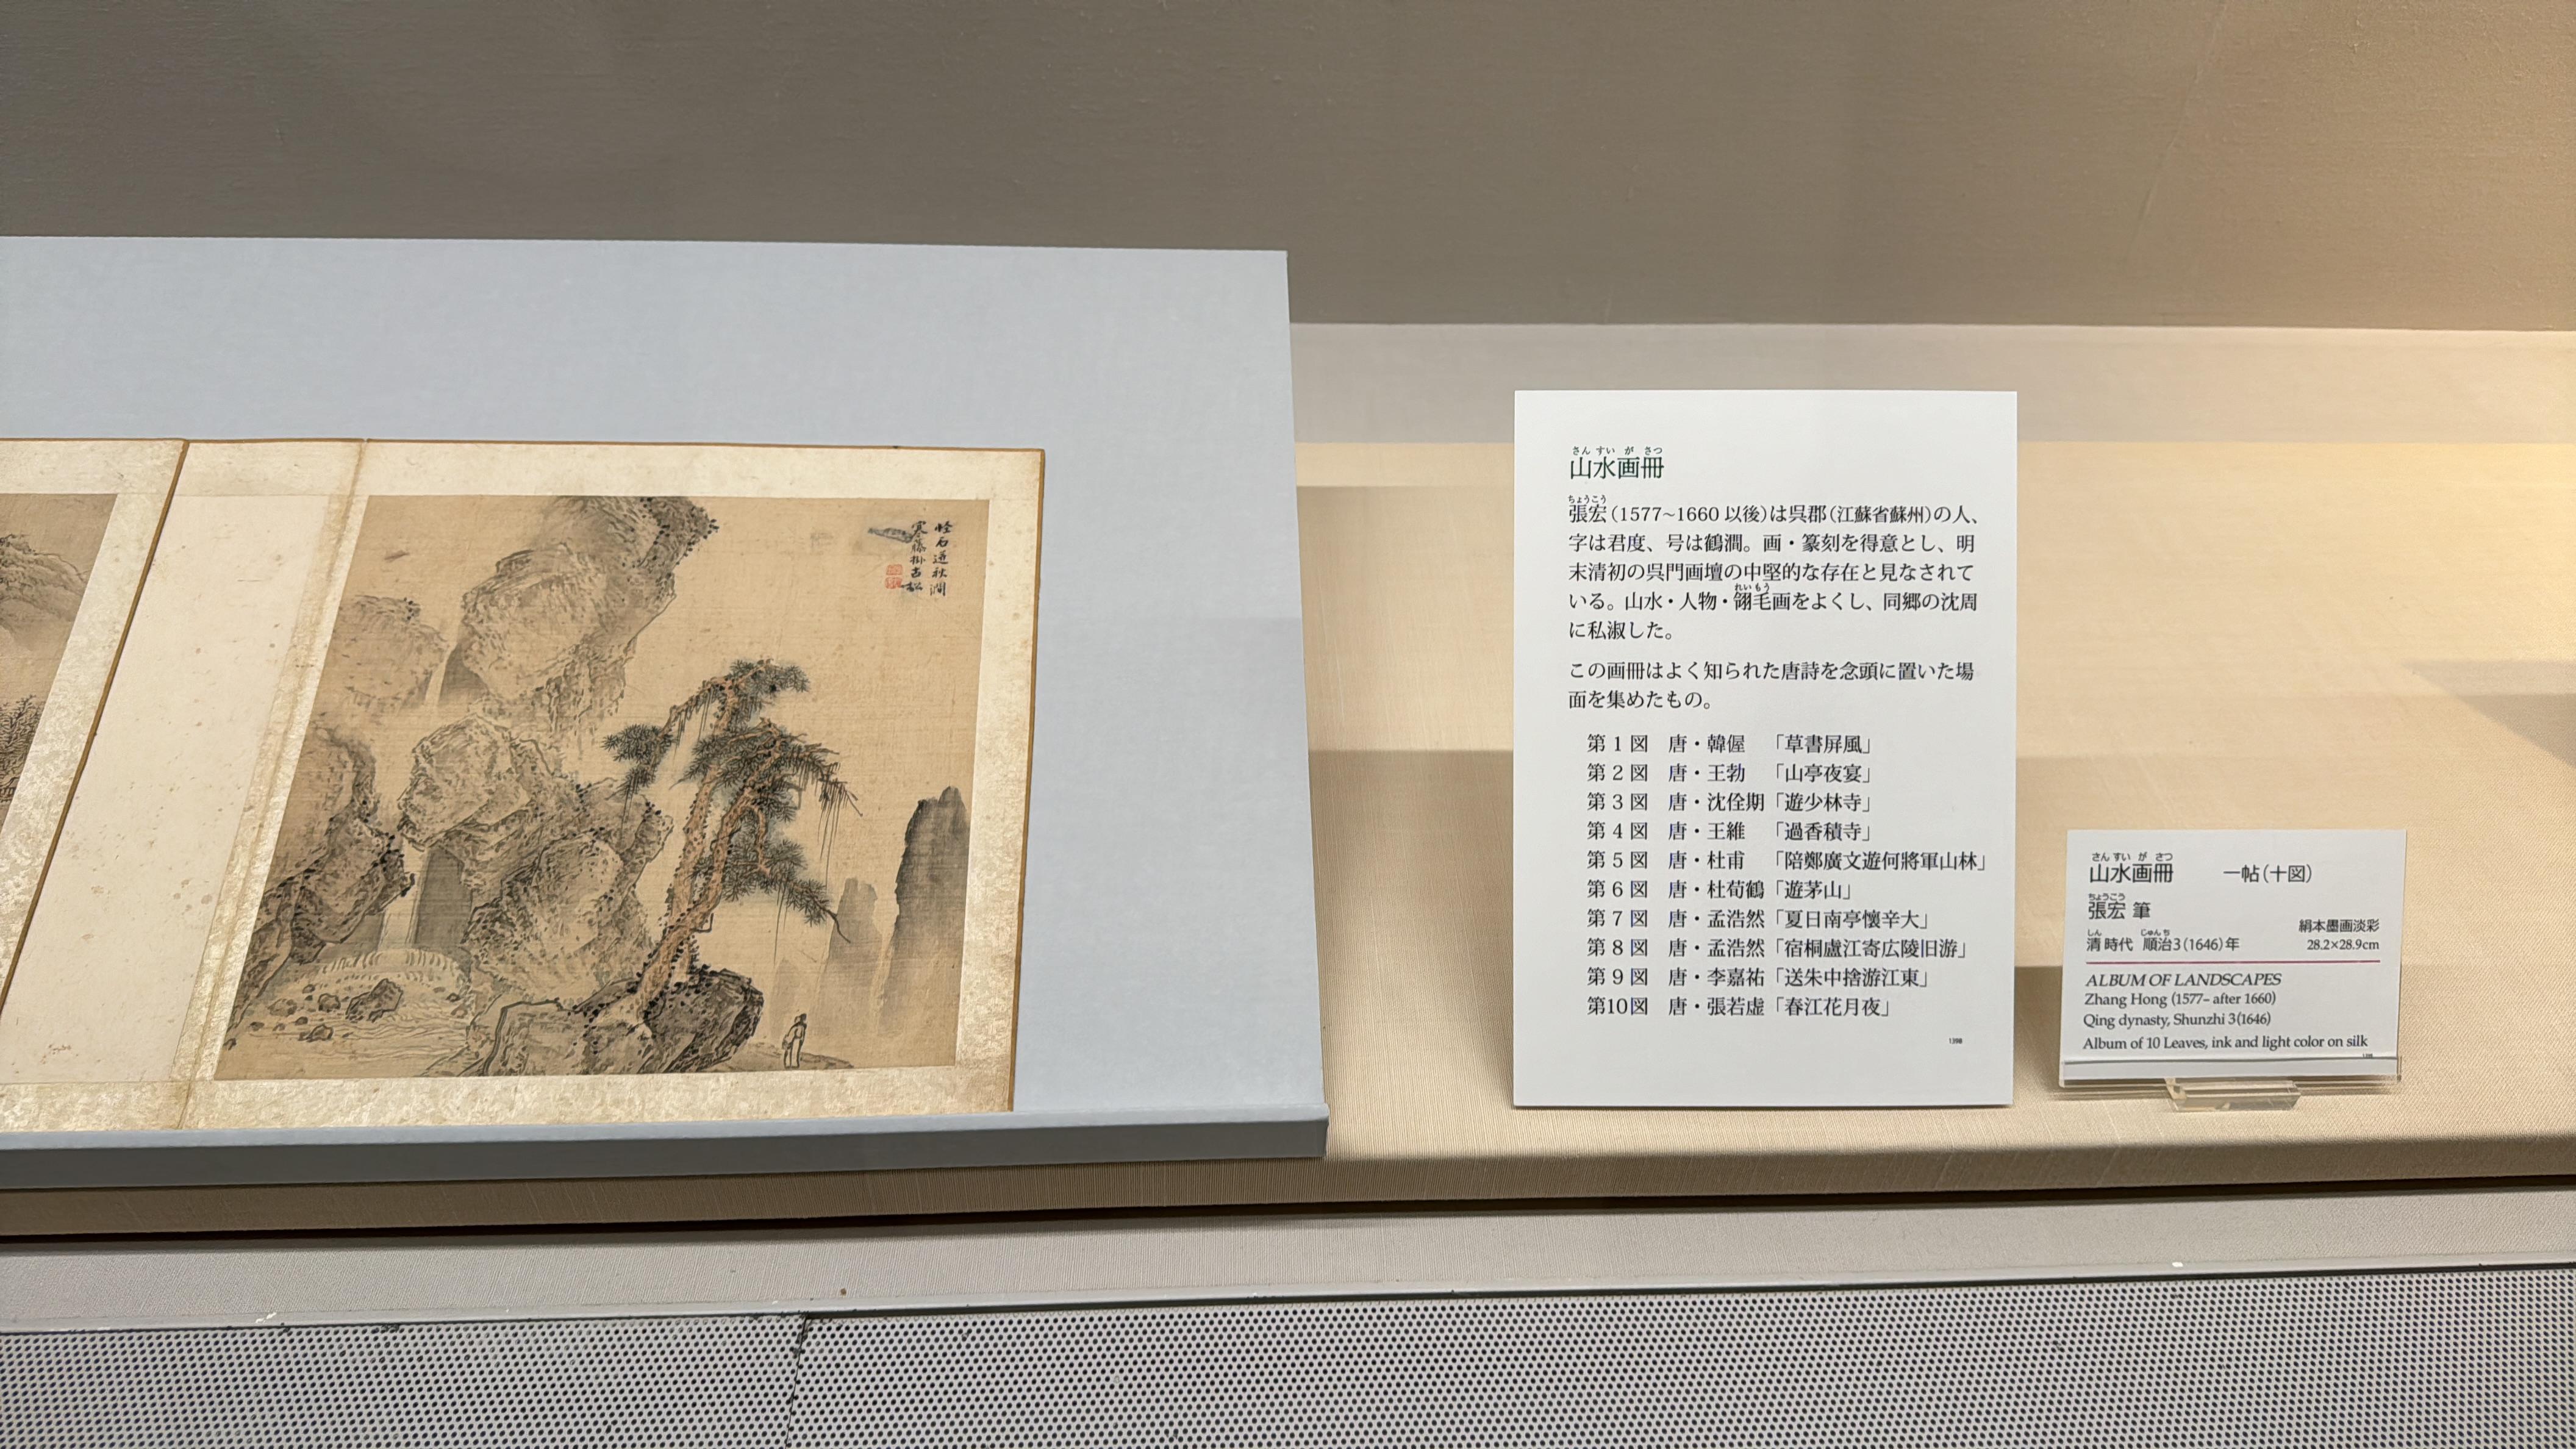 怪石迸秋澗
寒藤掛古松
さんすいがさつ
山水画冊
ちょうこう
張宏（1577~1660以後）は呉郡（江蘇省蘇州）の人、
字は君度、号は鶴澗。画・篆刻を得意とし、明
末清初の呉門画壇の中堅的な存在と見なされて
れいもう
いる。山水・人物・翎毛画をよくし、同郷の沈周
に私淑した。
この画冊はよく知られた唐詩を念頭に置いた場
面を集めたもの。
第1図 唐・韓偓 「草書屏風」
第2図 唐・王勃 「山亭夜宴」
第3図 唐・沈佺期「遊少林寺」
第4図 唐・王維 「過香積寺」
第5図 唐・杜甫 「陪鄭廣文遊何將軍山林」
第6図 唐・杜荀鶴「遊茅山」
第7図 唐・孟浩然「夏日南亭懐辛大」
第8図 唐・孟浩然「宿桐盧江寄広陵旧游」
第9図 唐・李嘉祐「送朱中捨游江東」
第10図 唐・張若虚「春江花月夜」
1398
さんすいがさつ
山水画冊 一帖（十図）
ちょうこう
張宏 筆
絹本墨画淡彩
しん じゅんち
清時代 順治3（1646）年 28.2×28.9cm
ALBUM OF LANDSCAPES
Zhang Hong (1577– after 1660)
Qing dynasty, Shunzhi 3(1646)
Album of 10 Leaves, ink and light color on silk